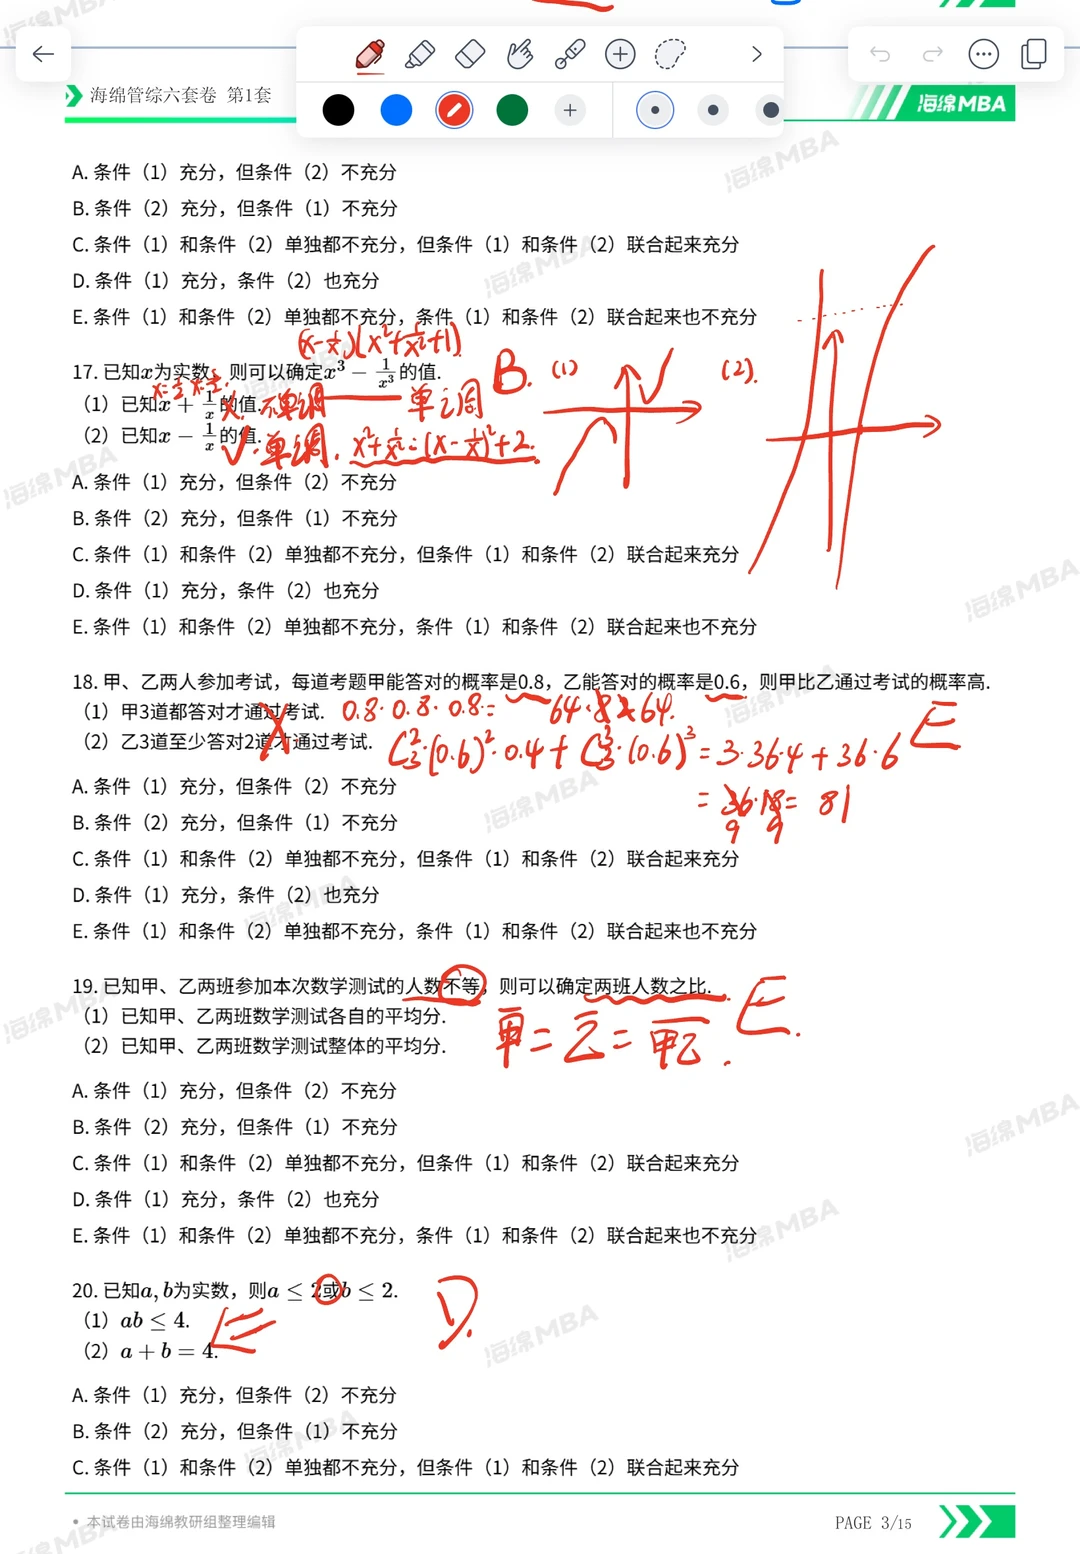 海绵管综六套卷 第1套
海绵MBA
A. 条件（1）充分，但条件（2）不充分
B. 条件（2）充分，但条件（1）不充分
C. 条件（1）和条件（2）单独都不充分，但条件（1）和条件（2）联合起来充分
D. 条件（1）充分，条件（2）也充分
E. 条件（1）和条件（2）单独都不充分，条件（1）和条件（2）联合起来也不充分
(x-1/x)(x²+1/x²+1)
17. 已知x为实数，则可以确定x³ − 1/x³ 的值.
B. (1) (2).
x=½ x=-½.
（1）已知x + 1/x 的值. X. 不单调 单调
（2）已知x − 1/x 的值. √. 单调. x²+1/x²=(x-1/x)²+2.
A. 条件（1）充分，但条件（2）不充分
B. 条件（2）充分，但条件（1）不充分
C. 条件（1）和条件（2）单独都不充分，但条件（1）和条件（2）联合起来充分
D. 条件（1）充分，条件（2）也充分
E. 条件（1）和条件（2）单独都不充分，条件（1）和条件（2）联合起来也不充分
18. 甲、乙两人参加考试，每道考题甲能答对的概率是0.8，乙能答对的概率是0.6，则甲比乙通过考试的概率高.
（1）甲3道都答对才通过考试. 0.8·0.8·0.8= 64·8 64. E
（2）乙3道至少答对2道才通过考试. X C₃²·(0.6)²·0.4+C₃³·(0.6)³=3·36·4+36·6
= 36·18= 81
9 9
A. 条件（1）充分，但条件（2）不充分
B. 条件（2）充分，但条件（1）不充分
C. 条件（1）和条件（2）单独都不充分，但条件（1）和条件（2）联合起来充分
D. 条件（1）充分，条件（2）也充分
E. 条件（1）和条件（2）单独都不充分，条件（1）和条件（2）联合起来也不充分
19. 已知甲、乙两班参加本次数学测试的人数不等，则可以确定两班人数之比. E.
（1）已知甲、乙两班数学测试各自的平均分.
（2）已知甲、乙两班数学测试整体的平均分. 甲=乙=甲乙.
A. 条件（1）充分，但条件（2）不充分
B. 条件（2）充分，但条件（1）不充分
C. 条件（1）和条件（2）单独都不充分，但条件（1）和条件（2）联合起来充分
D. 条件（1）充分，条件（2）也充分
E. 条件（1）和条件（2）单独都不充分，条件（1）和条件（2）联合起来也不充分
20. 已知a, b为实数，则a ≤ 2或b ≤ 2. D.
（1）ab ≤ 4.
（2）a + b = 4.
A. 条件（1）充分，但条件（2）不充分
B. 条件（2）充分，但条件（1）不充分
C. 条件（1）和条件（2）单独都不充分，但条件（1）和条件（2）联合起来充分
• 本试卷由海绵教研组整理编辑
PAGE 3/15